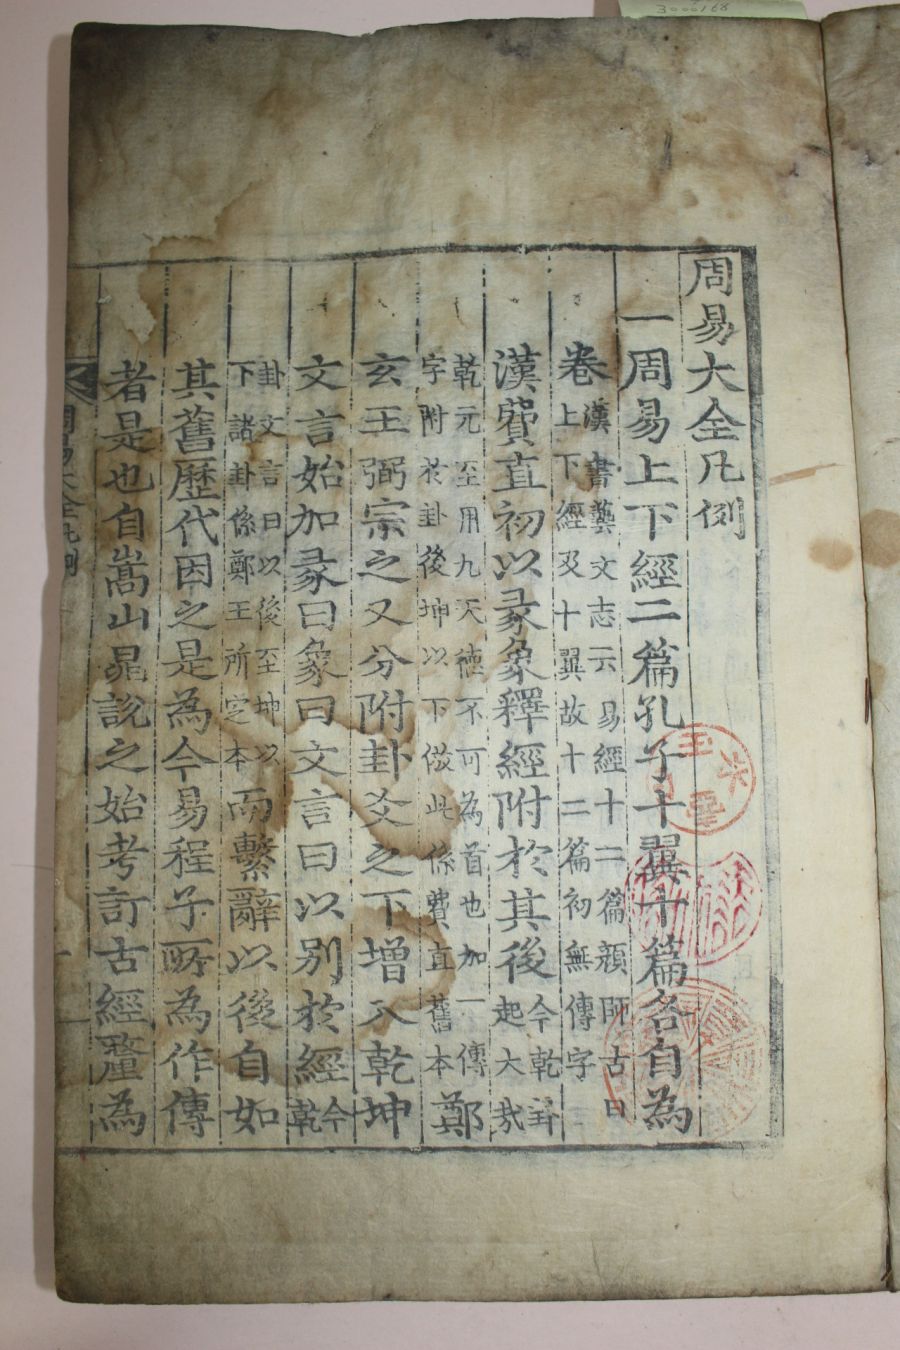 3000168
周易大全凡例
一周易上下經二篇孔子十翼十篇各自為
卷漢書藝文志云易經十二篇顏師古曰上下經及十翼故十二篇初無傳字
漢費直初以彖象釋經附於其後今乾卦起大哉
乾元至用九天德不可為首也加一傳字附於卦後坤以下倣此係費直舊本鄭
玄王弼宗之又分附卦爻之下增入乾坤
文言始加彖曰象曰文言曰以別於經今乾
卦文言曰以後至坤以下諸卦係鄭王所定本而繫辭以後自如
其舊歷代因之是為今易程子所為作傳
者是也自嵩山晁說之始考訂古經釐為
周易大全凡例
一